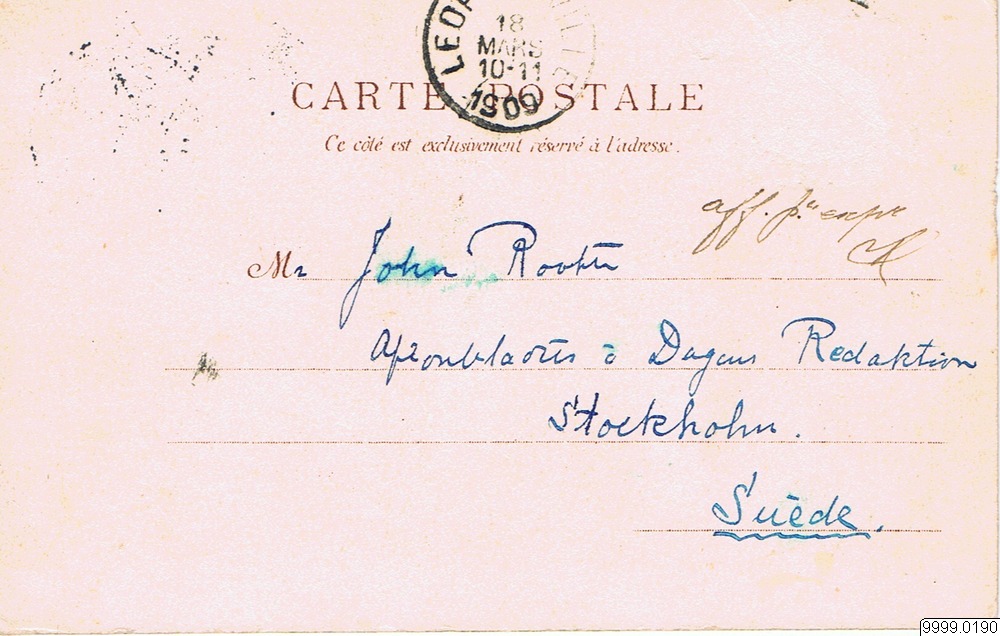 18
MARS
10-11
1909
CARTE POSTALE
Ce côté est exclusivement réservé à l'adresse.
aff. p.
Mr John
Aftonbladets o Dagens Redaktion
Stockholm.
Suède.
9999.0190